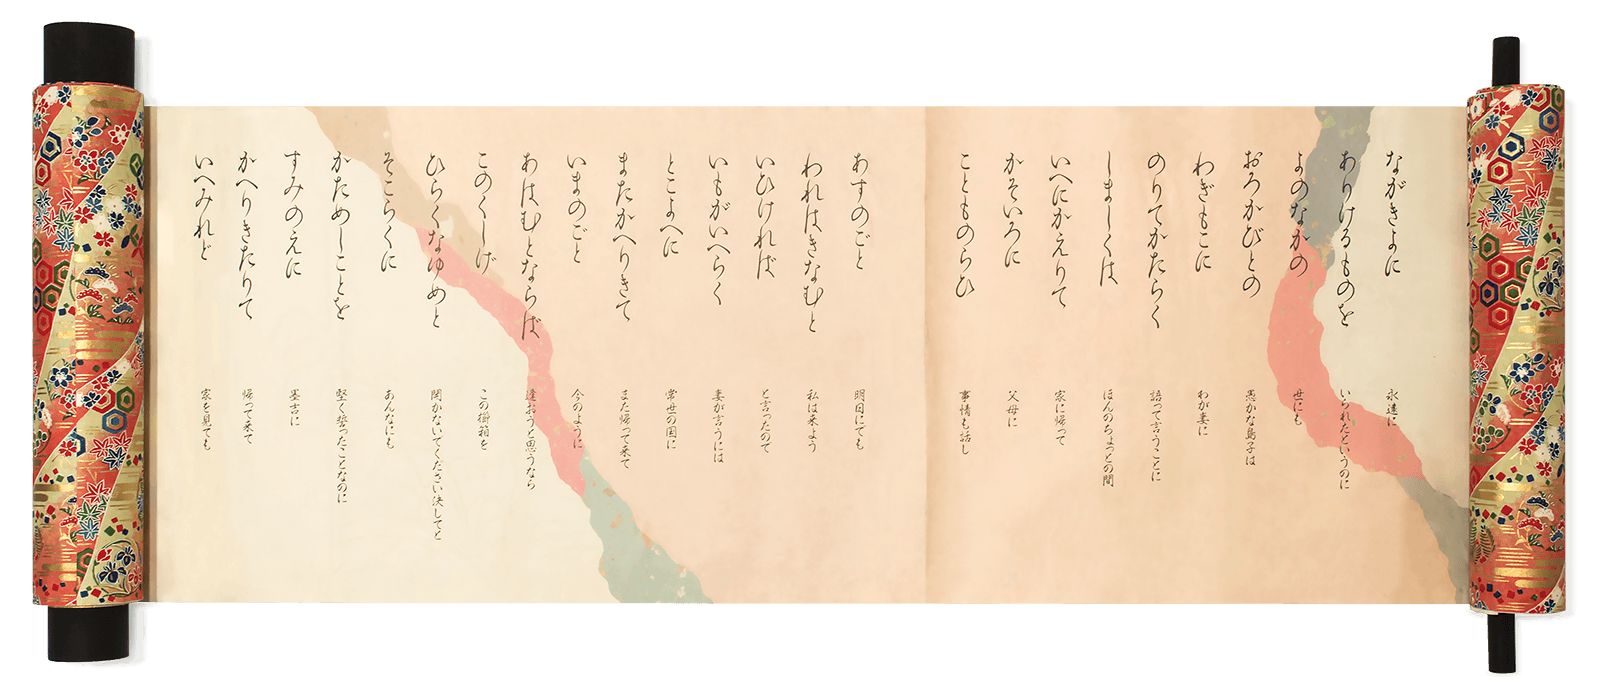 ながきよに
ありけるものを
よのなかの
おろかびとの
わぎもこに
のりてかたらく
しましくは
いへにかえりて
かそいろに
こともものらひ
あすのごと
われはきなむと
いひければ
いもがいへらく
とこよへに
またかへりきて
いまのごと
あはむとならば
このくしげ
ひらくなゆめと
そこらくに
かためしことを
すみのえに
かへりきたりて
いへみれど
永遠に
いられたというのに
世にも
愚かな島子は
わが妻に
語って言うことに
ほんのちょっとの間
家に帰って
父母に
事情も話し
明日にでも
私は来よう
と言ったので
妻が言うには
常世の国に
また帰って来て
今のように
逢おうと思うなら
この櫛箱を
開かないでください決してと
あんなにも
堅く誓ったことなのに
墨吉に
帰って来て
家を見ても